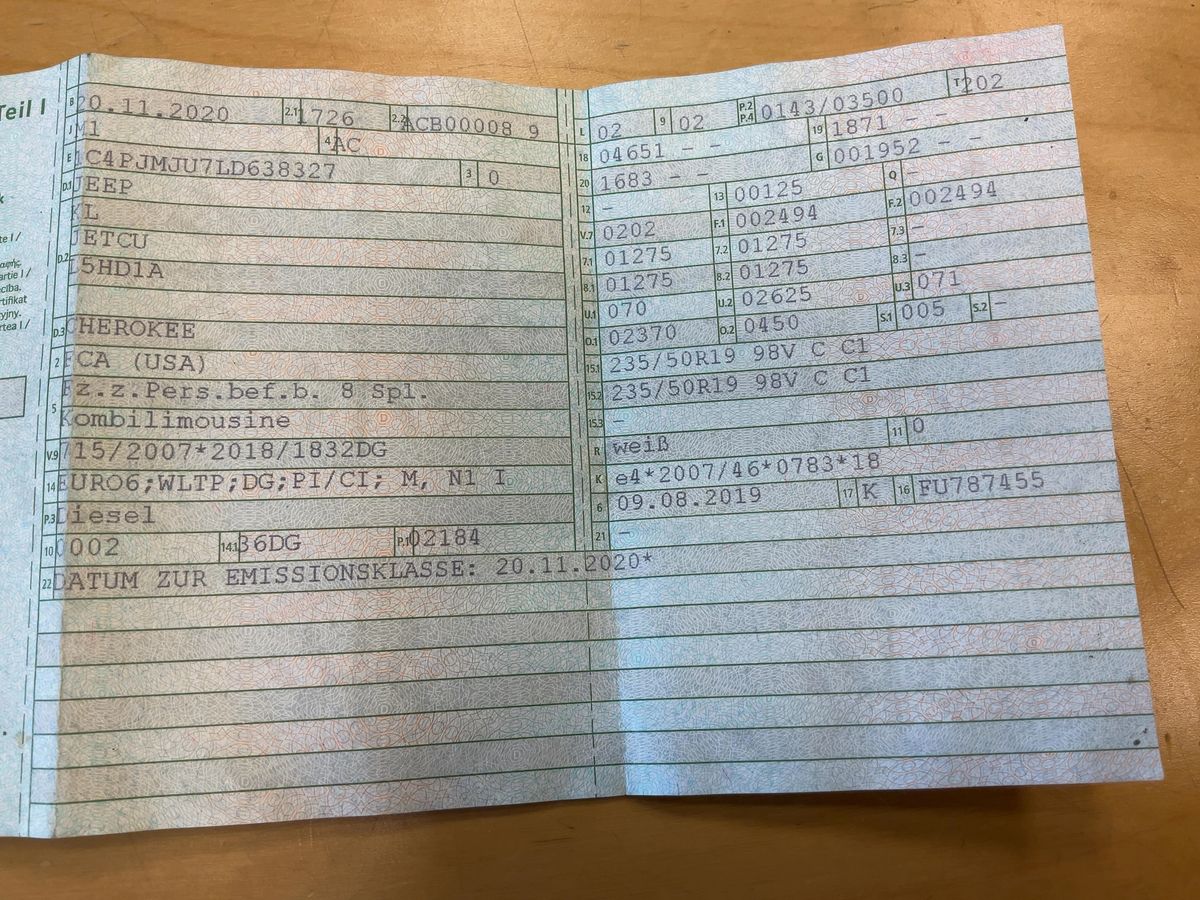 Teil I
B 20.11.2020 2.1 1726 2.2 ACB00008 9
J M1 4 AC
E 1C4PJMJU7LD638327 3 0
D.1 JEEP
KL
D.2 JETCU
L5HD1A
D.3 CHEROKEE
2 FCA (USA)
5 Fz.z.Pers.bef.b. 8 Spl.
Kombilimousine
V.9 715/2007*2018/1832DG
14 EURO6;WLTP;DG;PI/CI; M, N1 I
P.3 Diesel
10 0002 14.1 36DG P.1 02184
22 DATUM ZUR EMISSIONSKLASSE: 20.11.2020*
L 02 9 02 P.2 P.4 0143/03500 T 202
18 04651 - - 19 1871 - -
20 1683 - - G 001952 - -
12 - 13 00125 Q -
V.7 0202 F.1 002494 F.2 002494
7.1 01275 7.2 01275 7.3 -
8.1 01275 8.2 01275 8.3 -
U.1 070 U.2 02625 U.3 071
O.1 02370 O.2 0450 S.1 005 S.2 -
15.1 235/50R19 98V C C1
15.2 235/50R19 98V C C1
15.3 -
R weiß 11 0
K e4*2007/46*0783*18
6 09.08.2019 17 K 16 FU787455
21 -
k
te I /
artie I /
ecība,
rtifikat
yjny.
rtea I /